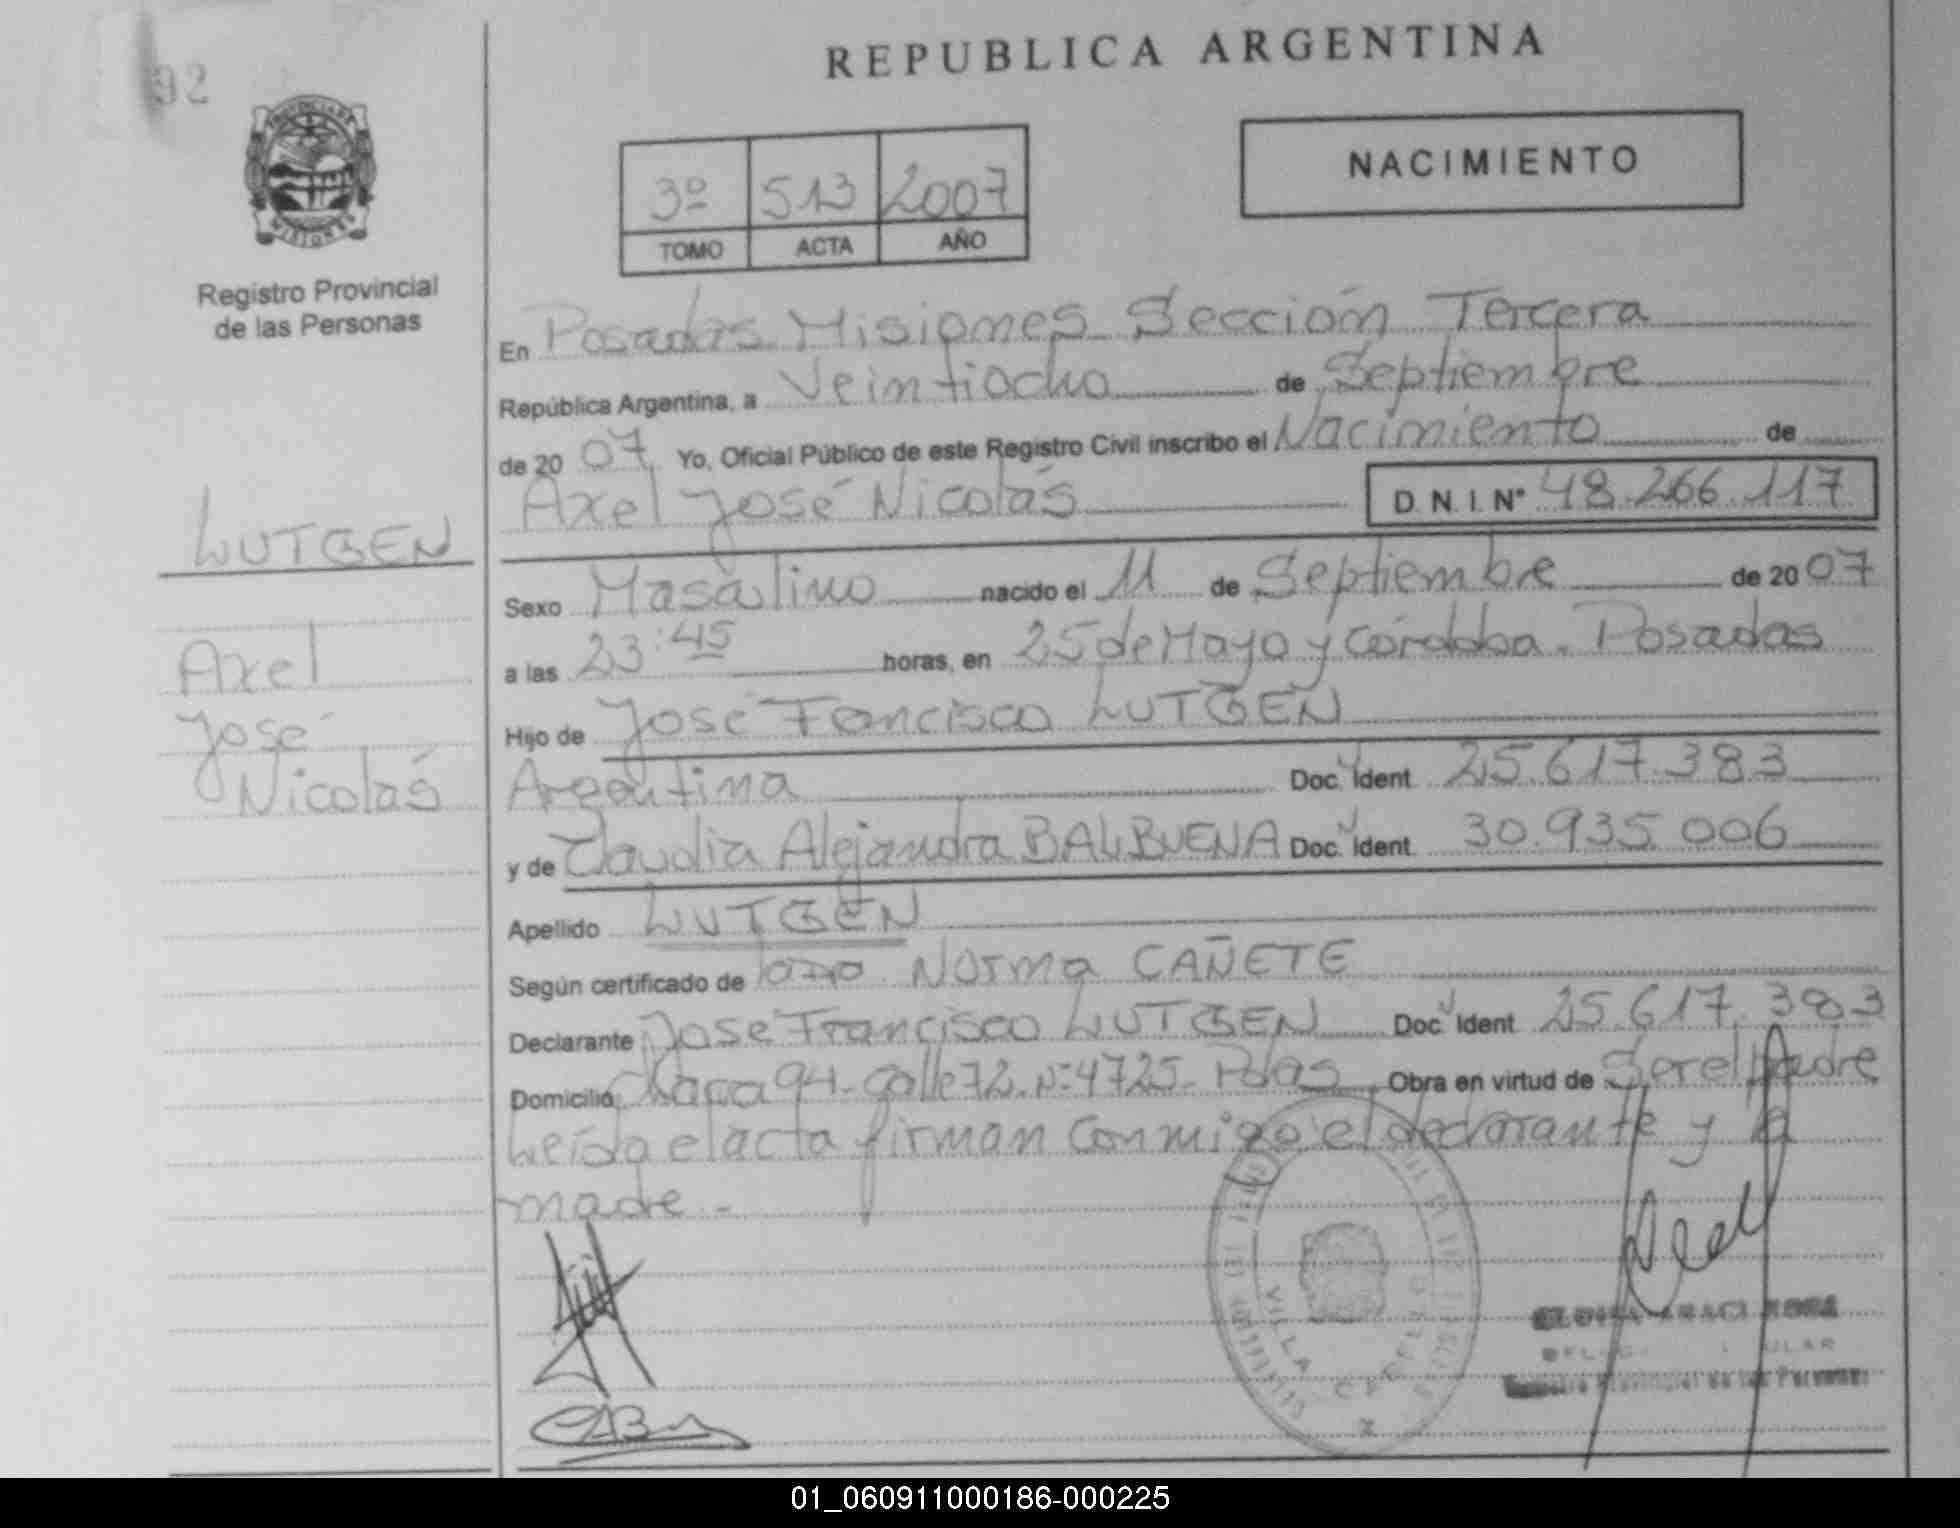 92
REPUBLICA ARGENTINA
PROVINCIA DE
MISIONES
3º 513 2007
TOMO ACTA AÑO
NACIMIENTO
Registro Provincial
de las Personas
En Posadas Misiones Sección Tercera
República Argentina, a Veintiocho de Septiembre
de 20 07 Yo, Oficial Público de este Registro Civil inscribo el Nacimiento de
Axel José Nicolás D.N.I. Nº 48.266.117
LUTGEN
Axel
José
Nicolás
Sexo Masculino nacido el 11 de Septiembre de 20 07
a las 23:45 horas, en 25 de Mayo y Córdoba. Posadas
Hijo de José Francisco LUTGEN
Argentina Doc. Ident. 25.617.383
y de Claudia Alejandra BALBUENA Doc. Ident. 30.935.006
Apellido LUTGEN
Según certificado de Norma CAÑETE
Declarante José Francisco LUTGEN Doc. Ident. 25.617.383
Domicilio Chacra 94 - Calle 72. Nº 4725 - Pdas Obra en virtud de Ser el padre
Leída el acta firman conmigo el declarante y la
madre.-
VILLA CABELLO
Registro Provincial de las Personas
01_060911000186-000225